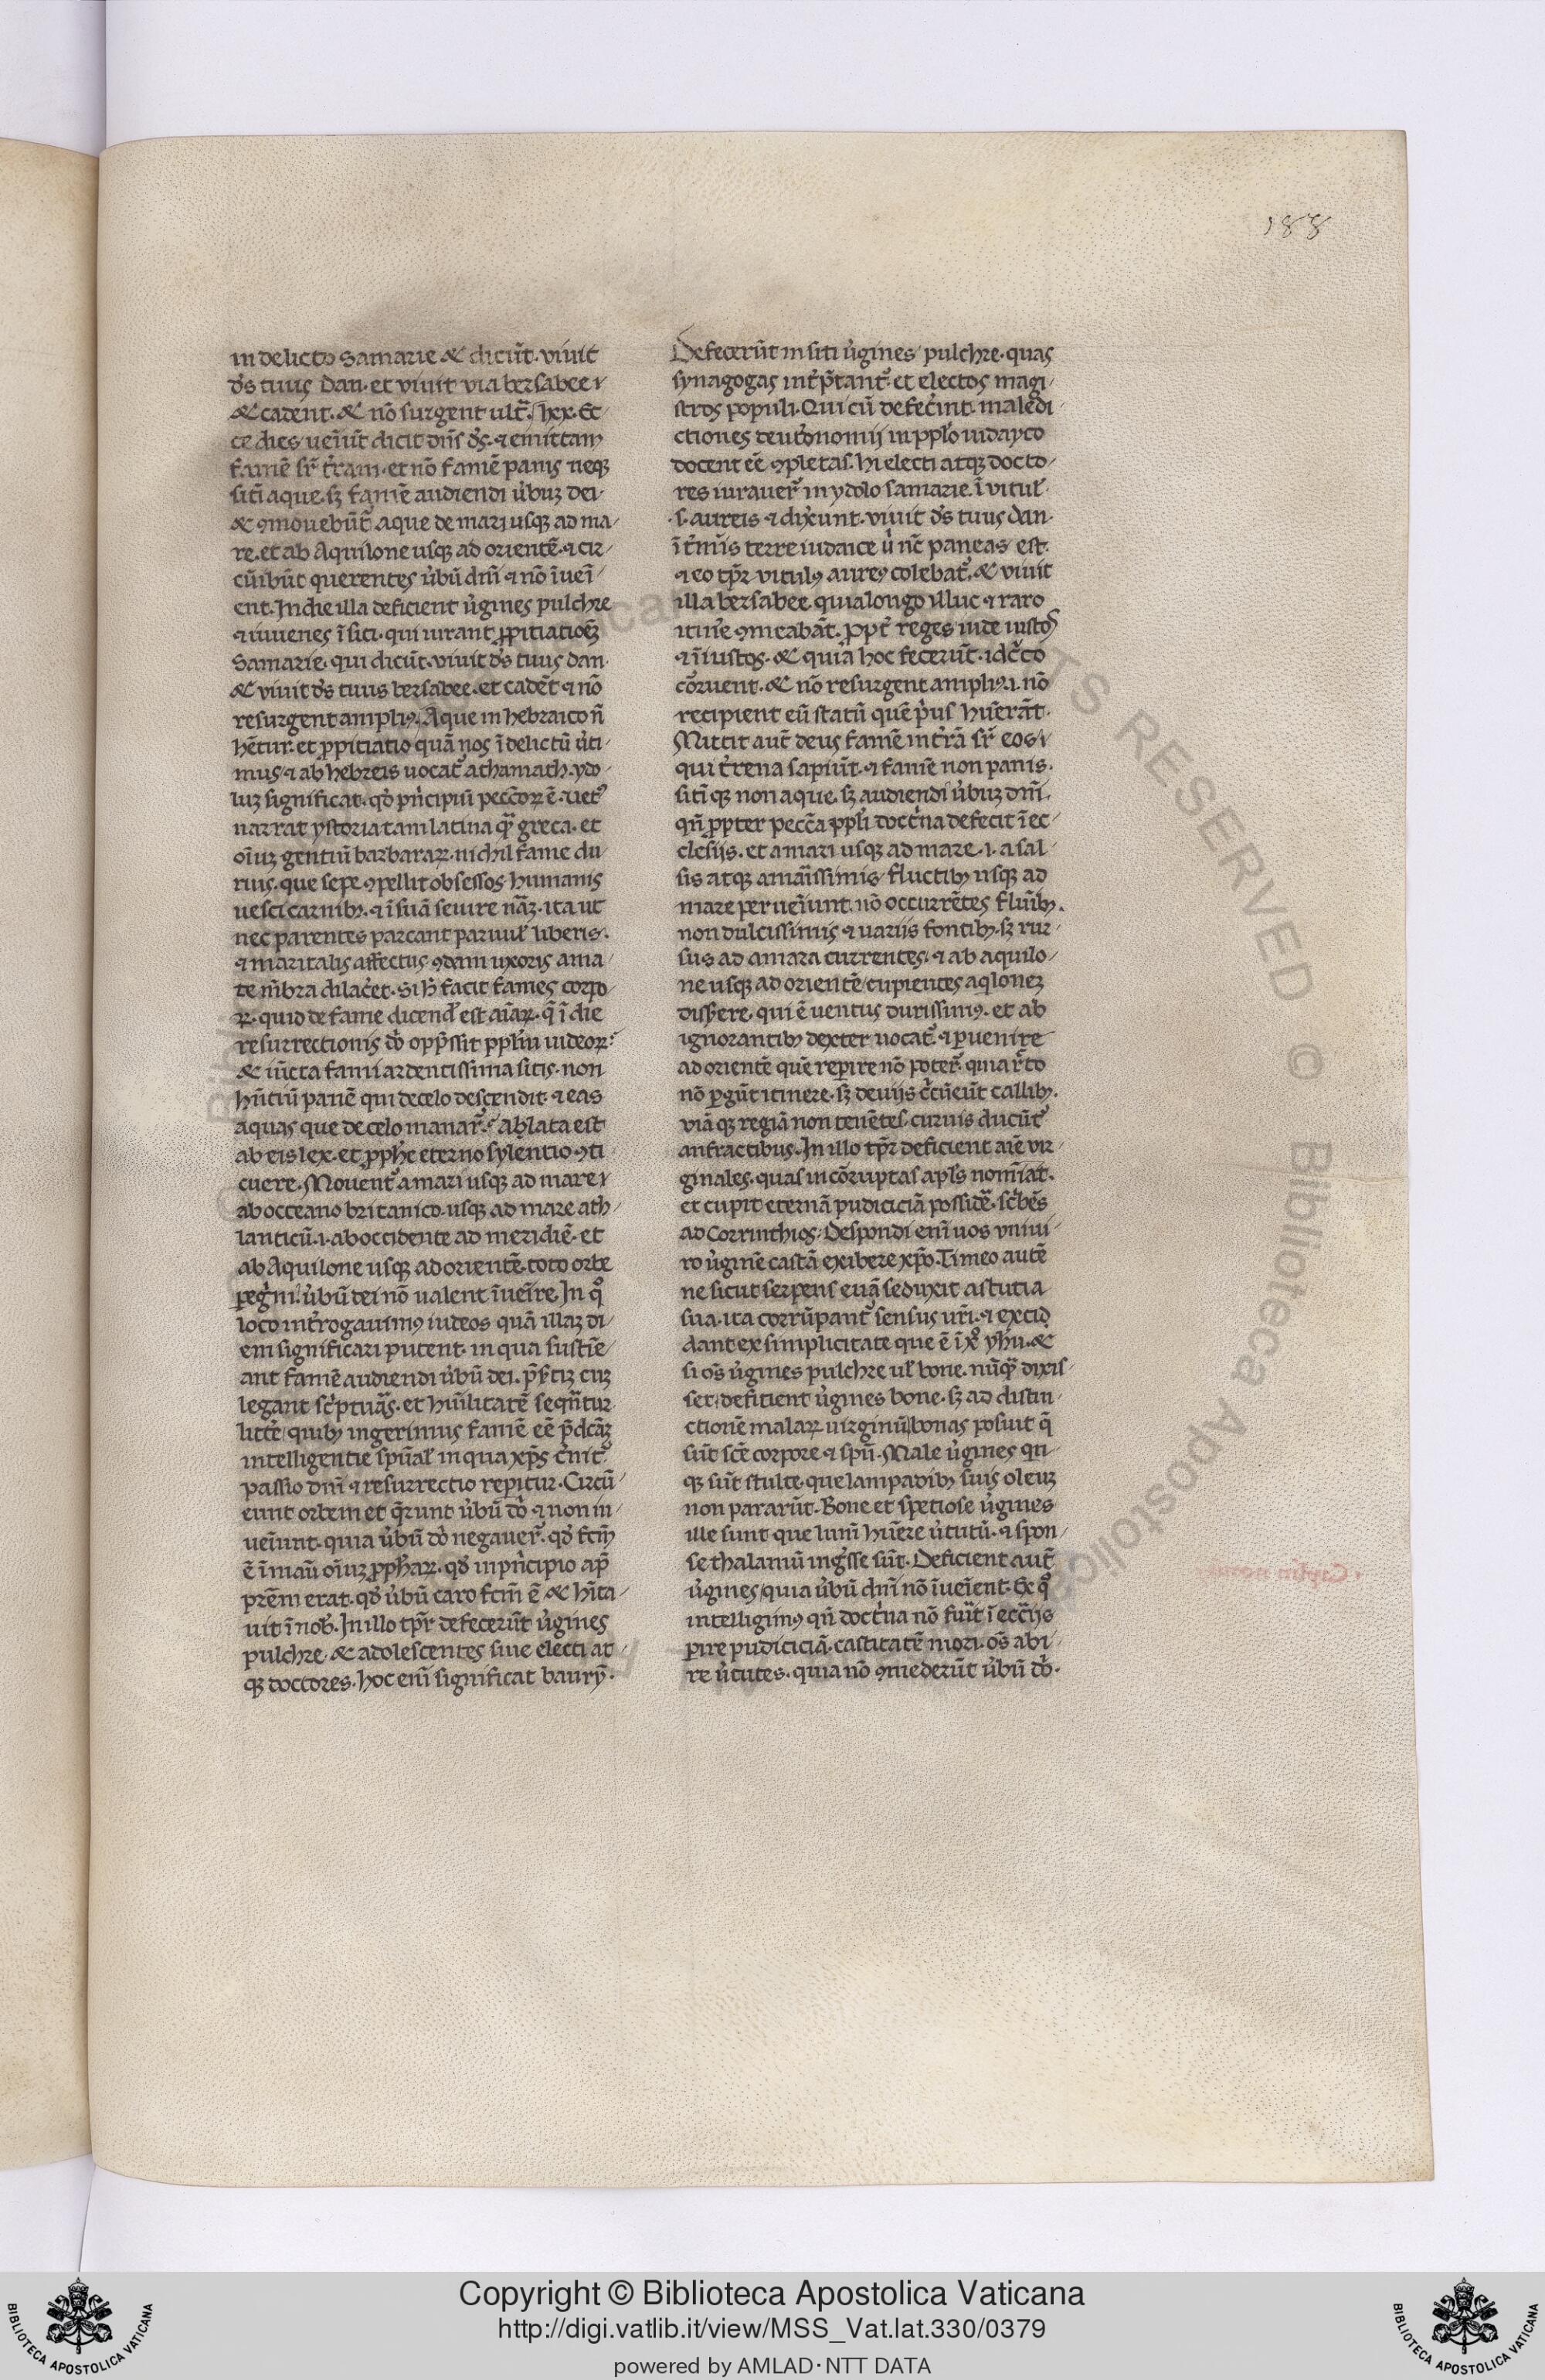 188
in delicto Samarie & dicũt. viuit
d's tuus Dan. et viuit via bersabee
& cadent. & nõ surgent ult̃. lxx. Ec
ce dies ueniũt dicit dñs d's. ⁊ emittam
famẽ sr̃ t'ram. et nõ famẽ panis neqꝫ
sitĩ aque. sꝫ famẽ audiendi u'buꝫ dei
& ꝯmouebũt̃ aque de mari usqꝫ ad ma
re. et ab Aquilone usqꝫ ad orientẽ. ⁊ cir
cũibũt querentes u'bũ dñi ⁊ nõ ĩueĩ
ent. In die illa deficient u'gines pulchre
⁊ iuuenes ĩ siti. qui iurant ꝓpitiatiõeꝫ
Samarie. qui dicũt. viuit d's tuus dan.
& viuit d's tuus bersabee. et cadẽt ⁊ nõ
resurgent ampliꝰ. Aque in hebraico ñ
hẽtur. et ꝓpitiatio quã nos ĩ delictũ u'ti
mus. ⁊ ab hebreis uocat᷑ athamath. ydo
luꝫ significat. qd' pñcipiũ pecc̃oꝝ ẽ. uet᷑
narrat ystoria tam latina qᷓ greca. et
oĩuꝫ gentiũ barbaraꝝ. nichil fame du
rius. que sepe ꝯpellit obsessos humanis
uesci carnibꝰ. ⁊ ĩ suã seuire nãꝫ. ita ut
nec parentes parcant paruul' liberis.
⁊ maritalis affectus ꝯdam uxoris ama
te mẽbra dilac'et. Si h̃ facit fames corpo
ꝝ. quid de fame dicend' est aĩaꝝ. q̃ ĩ die
resurrectionis dñi opp̃ssit pp̃lm iudeoꝝ
& iũcta fami ardentissima sitis. non
hñtiũ panẽ qui de celo descendit. ⁊ eas
aquas que de celo manar̃. Ablata est
ab eis lex. et ꝓphe eterno sylentio ꝯti
cuere. Mouent᷑ a mari usqꝫ ad mare
ab occeano britanico. usqꝫ ad mare ath
lanticũ .i. ab occidente ad meridiẽ. et
ab Aquilone usqꝫ ad orientẽ. toto orbe
ꝑegrini. u'bũ dei nõ ualent ĩueĩre. In qͦ
loco int'rogauimꝰ iudeos quã illaꝫ di
em significari putent. in qua sustĩe
ant famẽ audiendi u'bũ dei. p̃s'tiꝫ cuꝫ
legant sc'ptuᷓs. et huĩlitatẽ seqũtur
litte. quibꝰ ingerimus famẽ eẽ p̃dcãꝫ
intelligentie spũal' in qua xp̃s c'nit᷑
passio dñi ⁊ resurrectio reꝑitur. Circũ
eunt orbem et q̃runt u'bũ dñi ⁊ non in
ueĩunt. quia u'bũ dñi negauer̃. qd' fcm̃
ẽ ĩ manũ oĩuꝫ ꝓphaꝝ. qd' in pñcipio ap̃
prẽm erat. qd' u'bũ caro fcm̃ ẽ & hĩta
uit ĩ nob'. In illo tp̃r defecerũt u'gines
pulchre. & adolescentes siue electi at
qꝫ doctores. hoc eni significat baurỹ.
Defecerũt in siti u'gines pulchre. quas
synagogas int'p̃tant᷑. et electos magi
stros populi. Qui cũ defec'int. maledi
ctiones deut'onomij in pplo iudayco
docent eẽ ꝯpletas. hi electi atqꝫ docto
res iurauer̃ in ydolo samarie. ĩ vitul'
.s. aureis ⁊ dixerunt. viuit d's tuus dan.
ĩ t'mĩs terre iudaice u' nc̃ paneas est.
⁊ eo tp̃r vitulꝰ aureꝰ colebat᷑. & viuit
illa bersabee. quia longo illuc ⁊ raro
itin'e ꝯmeabãt. ꝓpt' reges iude iustos
⁊ ĩiustos. & quia hoc fecerũt. idc'co
cõruent. & nõ resurgent ampliꝰ .i. nõ
recipient eũ statũ quẽ p'us huerãt.
Mittit aut̃ deus famẽ in t'rã sr̃ eos
qui t'rena sapiũt. ⁊ famẽ non panis.
sitĩ qꝫ non aque. sꝫ audiendi u'buꝫ dñi.
qñ ꝓpter pecc̃a ppl'i doct'na defecit ĩ ec
clesijs. et a mari usqꝫ ad mare .i. a sal
sis atqꝫ amarissimis fluctibꝰ usqꝫ ad
mare perueĩunt. nõ occurrẽtes flũibꝰ.
non dulcissimis ⁊ uariis fontibꝰ. sꝫ rur
sus ad amara currentes. ⁊ ab aquilo
ne usqꝫ ad orientẽ cupientes aqloneꝫ
disserere. qui ẽ uentus durissimꝰ. et ab
ignorantibꝰ dexter uocat᷑. ⁊ ꝑuenire
ad orientẽ quẽ reꝑire nõ poter̃. quia r̃to
nõ ꝑgũt itinere. sꝫ deuijs c'cũeũt callibꝰ.
viã qꝫ regiã non tenẽtes. curuis ducũt᷑
anfractibus. In illo tp̃r deficient aĩe vir
ginales. quas incõruptas apl's nomĩat.
et cupit eternã pudiciciã possidẽ. sc'bẽs
ad Corrinthios: Despondi enĩ uos vniui
ro u'ginẽ castã exibere xp̃o. Timeo autẽ
ne sicut serpens euã seduxit astutia
sua. ita corrũpant᷑ sensus ur̃i. ⁊ excid
dant ex simplicitate que ẽ ĩ xͦ yhu. &
si om̃s u'gines pulchre ul' bone. nũqᷓ dixis
set. deficient u'gines bone. sꝫ ad distin
ctionẽ malaꝝ uirginũ bonas posuit q̃
sũt sc̃e corpore ⁊ spũ. Male u'gines qn
qꝫ sũt stulte. que lampadibꝰ suis oleuꝫ
non pararũt. Bone et spetiose u'gines
ille sunt que lumĩ huĩere u'tutũ. ⁊ spon
se thalamũ ing'sse sũt. Deficient aut̃
u'gines quia u'bũ dñi nõ ĩueĩent. Ex qͦ
intelligimꝰ qñ doct'na nõ fu'it ĩ ecc'ijs
ꝑire pudiciciã. castitatẽ mori. om̃s abi
re u'tutes. quia nõ ꝯmederũt u'bũ dñi.
Copyright © Biblioteca Apostolica Vaticana
http://digi.vatlib.it/view/MSS_Vat.lat.330/0379
powered by AMLAD·NTT DATA
BIBLIOTECA APOSTOLICA VATICANA
BIBLIOTECA APOSTOLICA VATICANA